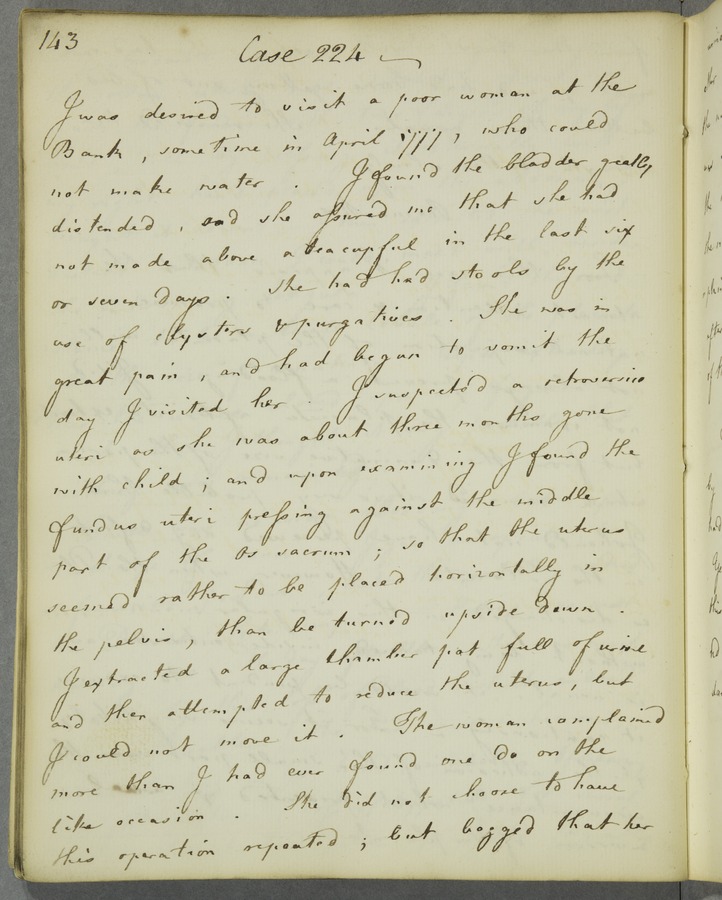 143
Case 224
I was desired to visit a poor woman at the
Bank, sometime in April 1777, who could
not make water. I found the bladder greatly
distended, and she assured me that she had
not made above a teacupful in the last six
or seven days. She had had stools by the
use of clysters & purgatives. She was in
great pain, and had begun to vomit the
day I visited her. I suspected a retroversio
uteri as she was about three months gone
with child; and upon examining I found the
fundus uteri pressing against the middle
part of the Os sacrum; so that the uterus
seemed rather to be placed horizontally in
the pelvis, than be turned upside down.
I extracted a large chamber pot full of urine
and then attempted to reduce the uterus, but
I could not move it. The woman complained
more than I had ever found one do on the
like occasion. She did not choose to have
this operation repeated; but begged that her